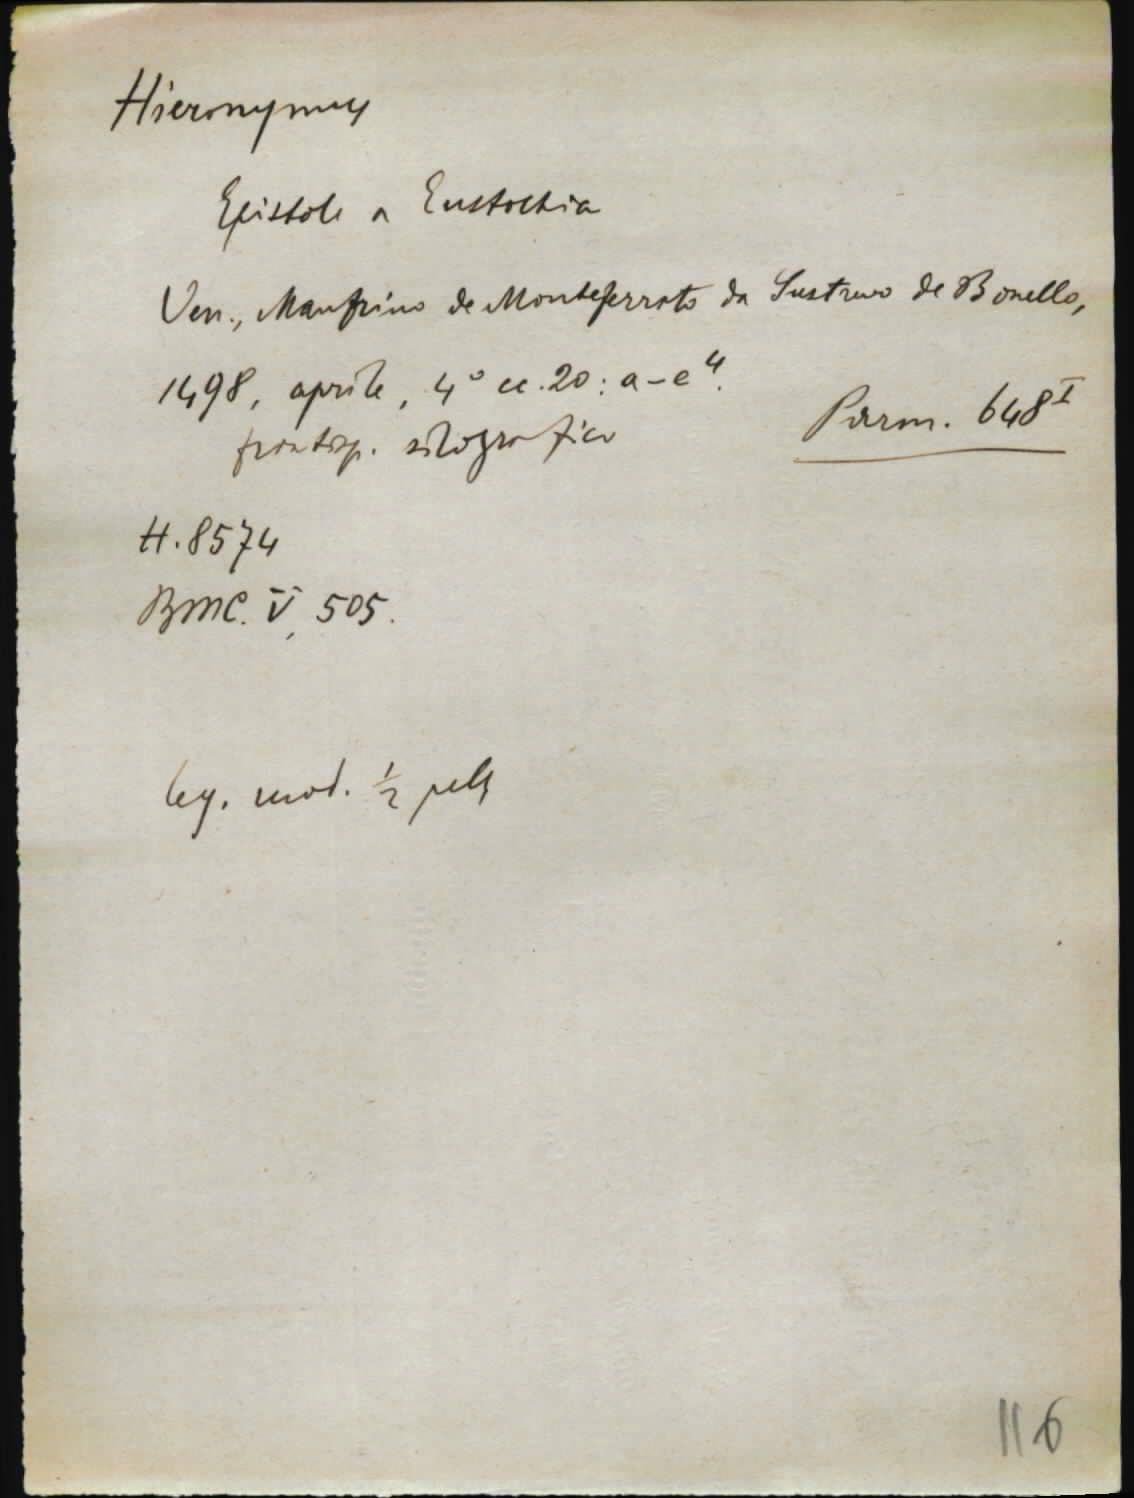 Hieronymus
Epistole a Eustochia
Ven., Manfrino de Monteferrato da Sustrevo de Bonello,
1498, aprile, 4° cc. 20: a-e⁴.
frontisp. silografico
Parm. 648ᴵ
H. 8574
BMC. V, 505.
leg. mod. ½ pelle
116